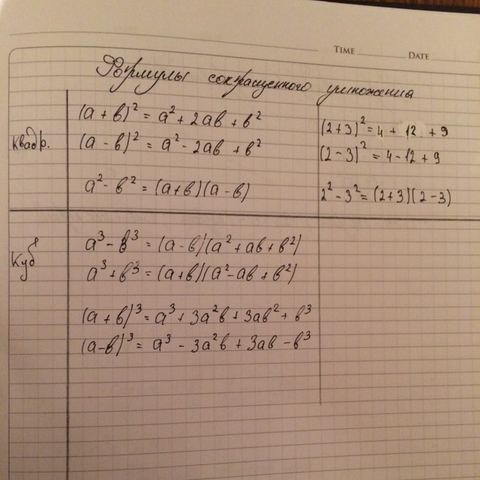 TIME DATE
Формулы сокращенного умножения
Квадр.
(a + в)² = a² + 2aв + в²
(a - в)² = a² - 2aв + в²
a² - в² = (a+в)(a-в)
(2+3)² = 4 + 12 + 9
(2-3)² = 4 - 12 + 9
2² - 3² = (2+3)(2-3)
Куб
a³ - в³ = (a-в)(a² + aв + в²)
a³ + в³ = (a+в)(a² - aв + в²)
(a + в)³ = a³ + 3a²в + 3aв² + в³
(a-в)³ = a³ - 3a²в + 3aв - в³